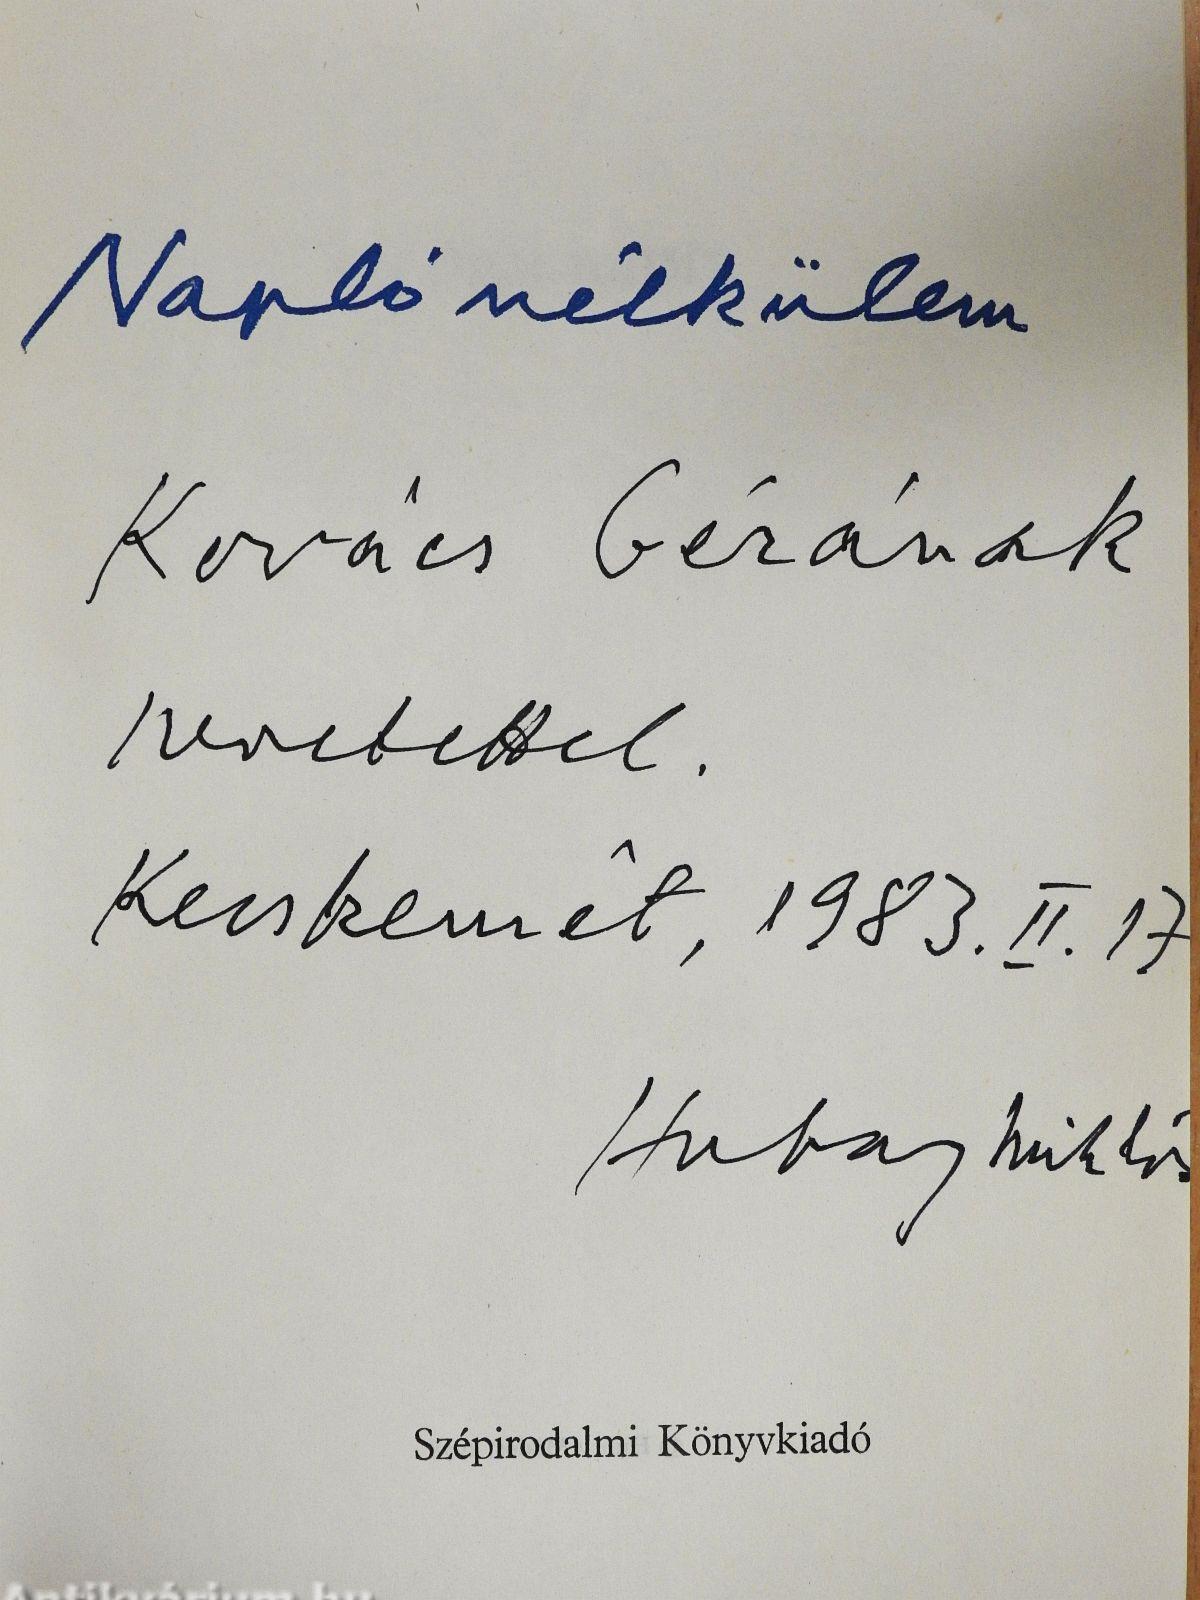 Napló nélkülem
Kovács Gézának
szeretettel.
Kecskemét, 1983. II. 17
Hubay Miklós
Szépirodalmi Könyvkiadó
Antikvárium.hu